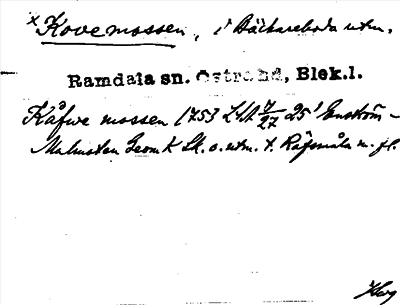 × Kovemossen, i Bäckareboda utm.
Ramdala sn. Östra hd, Blek.l.
Kåfwe mossen 1753 LSA 7/27 25' Enström –
Malmsten Geom K Sk. o. utm. t. Räfsmåla m. fl.